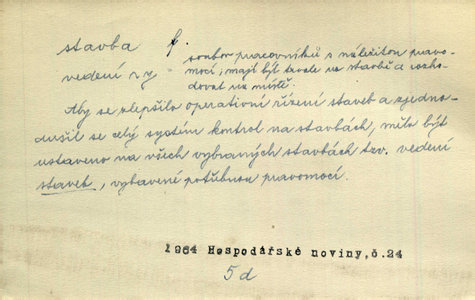 stavba f.
vedení r y soubor pracovníků s náležitou pravo-
mocí; mají být trvale na stavbě a rozho-
dovat na místě.
Aby se zlepšilo operativní řízení staveb a zjedno-
dušil se celý systém kontrol na stavbách, může být
ustaveno na všech vybraných stavbách tzv. vedení
staveb, vybavené potřebnou pravomocí.
1964 Hospodářské noviny,č.24
5 d